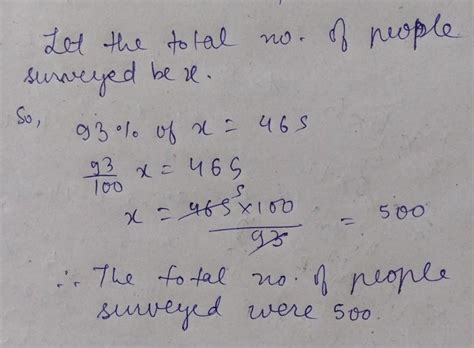 Let the total no. of people
surveyed be x.
So,
93% of x = 465
93/100 x = 465
x = 465 5 × 100 / 93 = 500
∴ The total no. of people
surveyed were 500.